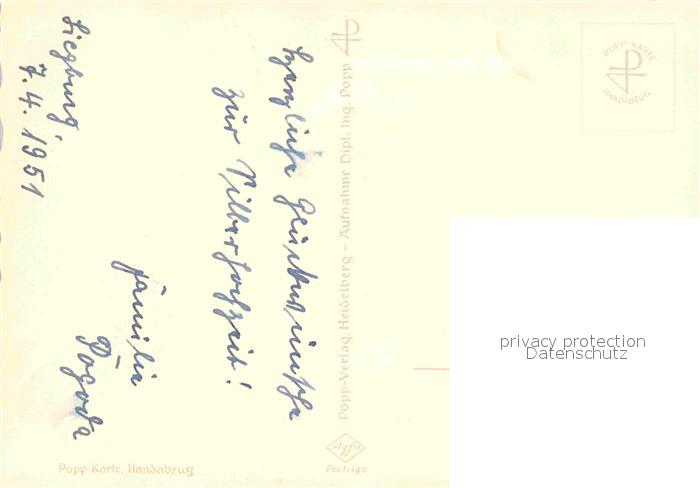 Siegburg,
7. 4. 1951
Herzliche Glückwünsche
zur Silberhochzeit!
Familie
Popp-Karte, Handabzug
Popp-Verlag, Heidelberg – Aufnahme Dipl. Ing. Popp
Agfa
Portriga
POPP-KARTE
HANDABZUG
privacy protection
Datenschutz